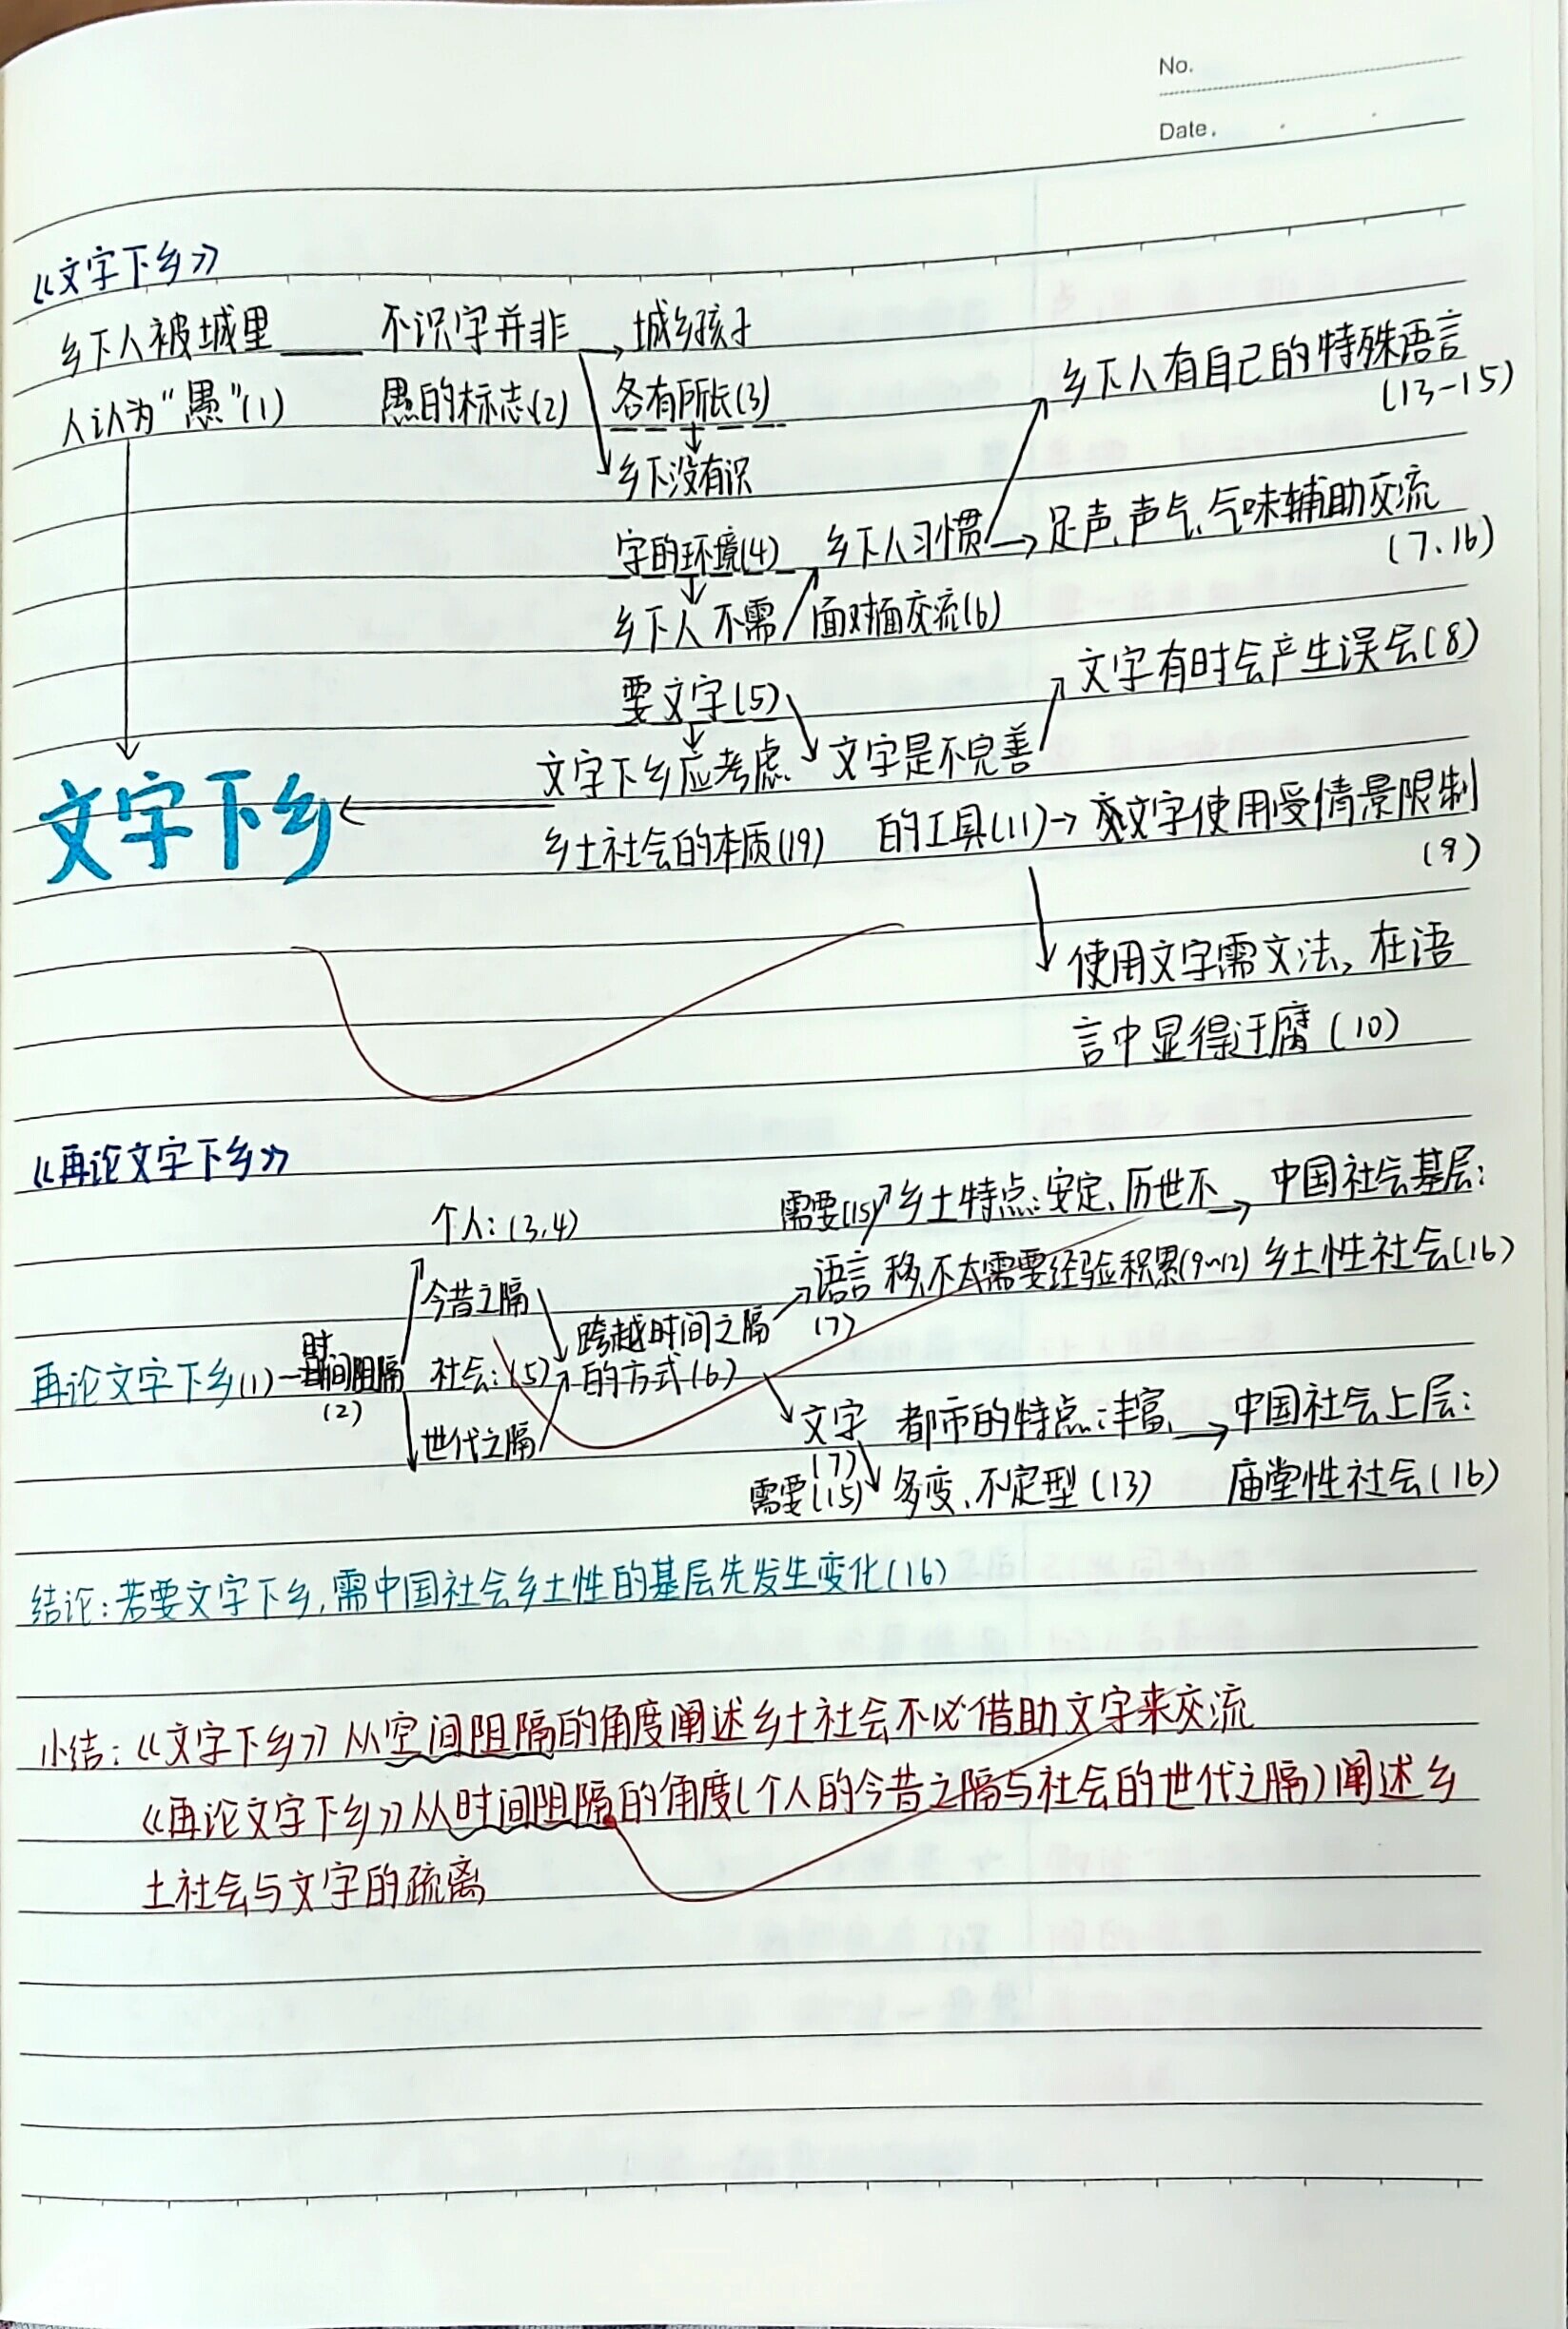 No.
Date.
《文字下乡》
乡下人被城里 不识字并非 城乡孩子
人认为“愚”(1) 愚的标志(2) 各有所长(3)
乡下人有自己的特殊语言
(13-15)
乡下没有识
字的环境(4) 乡下人习惯 足声、声气、气味辅助交流
(7、16)
乡下人不需 面对面交流(6)
要文字(5) 文字有时会产生误会(8)
文字下乡应考虑 文字是不完善
文字下乡
乡土社会的本质(19) 的工具(11) 文字使用受情景限制
(9)
使用文字需文法，在语
言中显得迂腐(10)
《再论文字下乡》
个人：(3,4) 需要(15) 乡土特点：安定、历世不 中国社会基层：
今昔之隔 语言 移，不太需要经验积累(9~12) 乡土性社会(16)
(7)
跨越时间之隔
再论文字下乡(1) 时间阻隔 社会：(5) 的方式(6)
(2)
世代之隔 文字 都市的特点：丰富、 中国社会上层：
(7)
需要(15) 多变、不定型(13) 庙堂性社会(16)
结论：若要文字下乡，需中国社会乡土性的基层先发生变化(16)
小结：《文字下乡》从空间阻隔的角度阐述乡土社会不必借助文字来交流
《再论文字下乡》从时间阻隔的角度(个人的今昔之隔与社会的世代之隔)阐述乡
土社会与文字的疏离